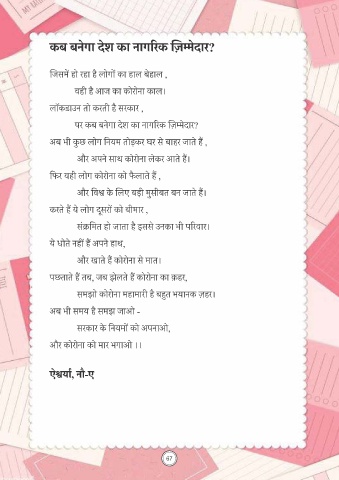 कब बनेगा देश का नागरिक ज़िम्मेदार?
जिसमें हो रहा है लोगों का हाल बेहाल ,
वही है आज का कोरोना काल।
लॉकडाउन तो करती है सरकार ,
पर कब बनेगा देश का नागरिक ज़िम्मेदार?
अब भी कुछ लोग नियम तोड़कर घर से बाहर जाते हैं ,
और अपने साथ कोरोना लेकर आते हैं।
फिर वही लोग कोरोना को फैलाते हैं ,
और विश्व के लिए बड़ी मुसीबत बन जाते हैं।
करते हैं ये लोग दूसरों को बीमार ,
संक्रमित हो जाता है इससे उनका भी परिवार।
ये धोते नहीं हैं अपने हाथ,
और खाते हैं कोरोना से मात।
पछताते हैं तब, जब झेलते हैं कोरोना का क़हर,
समझो कोरोना महामारी है बहुत भयानक ज़हर।
अब भी समय है समझ जाओ -
सरकार के नियमों को अपनाओ,
और कोरोना को मार भगाओ ।।
ऐश्वर्या, नौ-ए
67